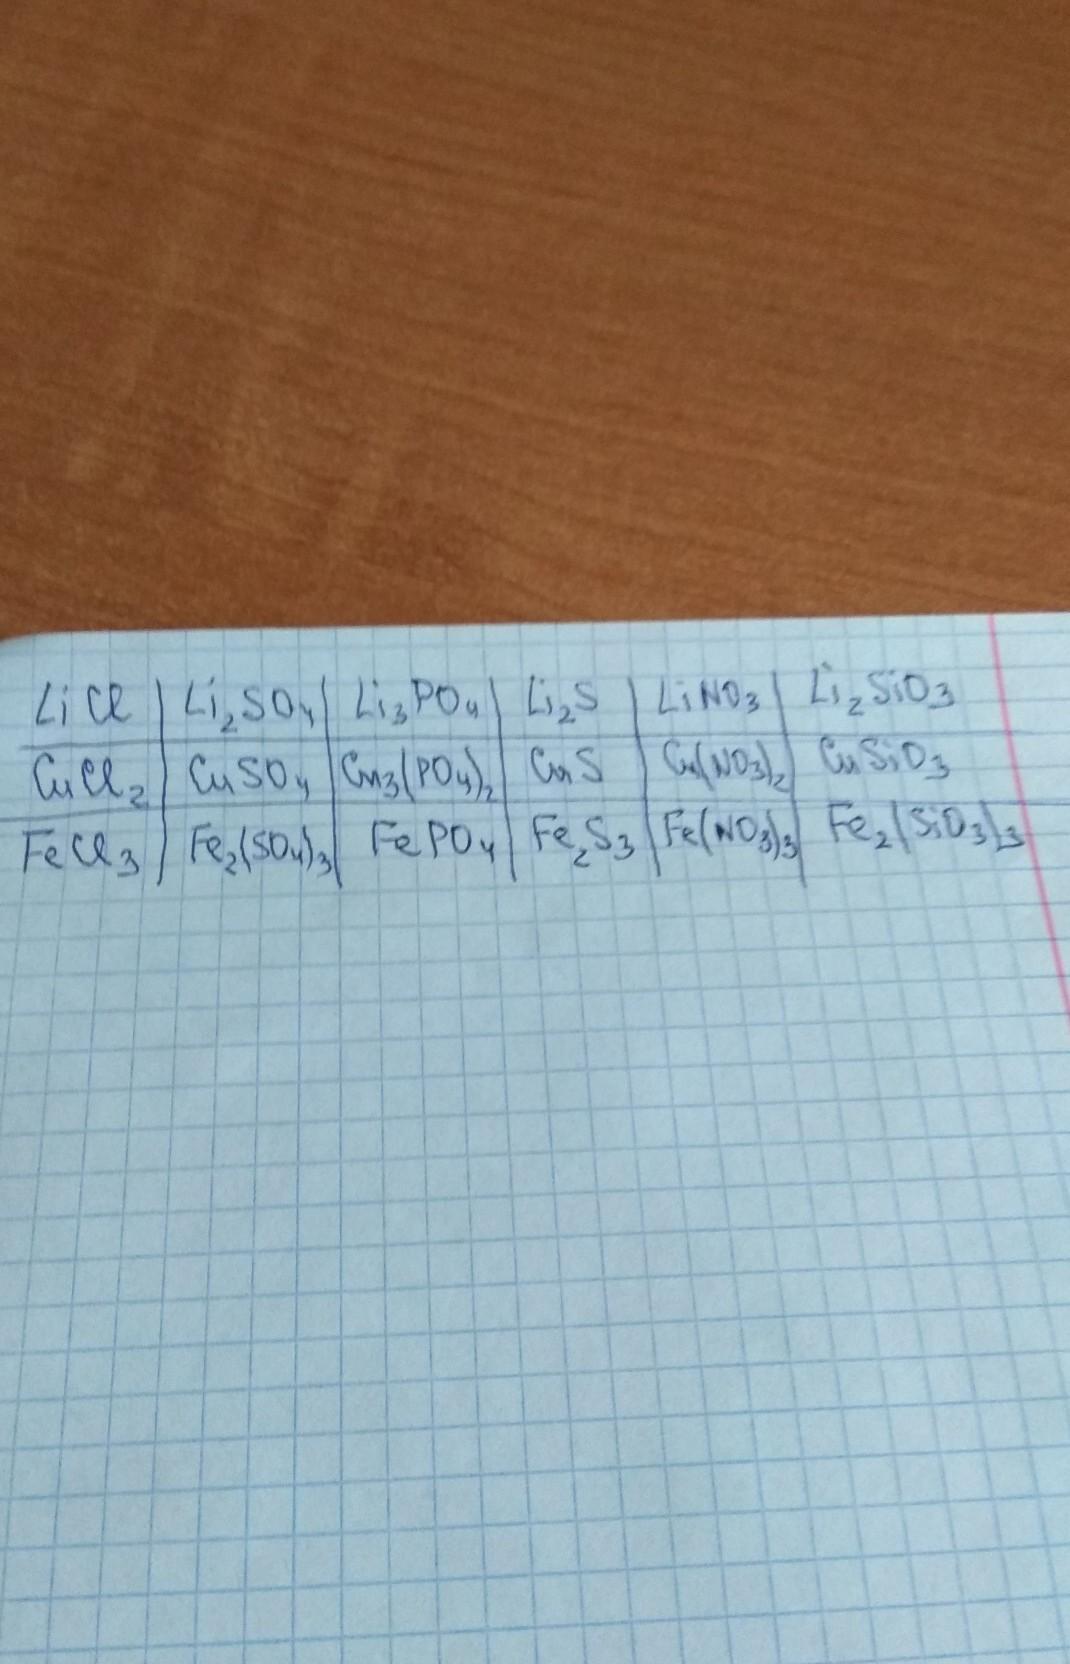 LiCl | Li₂SO₄ | Li₃PO₄ | Li₂S | LiNO₃ | Li₂SiO₃
CuCl₂ | CuSO₄ | Cu₃(PO₄)₂ | CuS | Cu(NO₃)₂ | CuSiO₃
FeCl₃ | Fe₂(SO₄)₃ | FePO₄ | Fe₂S₃ | Fe(NO₃)₃ | Fe₂(SiO₃)₃